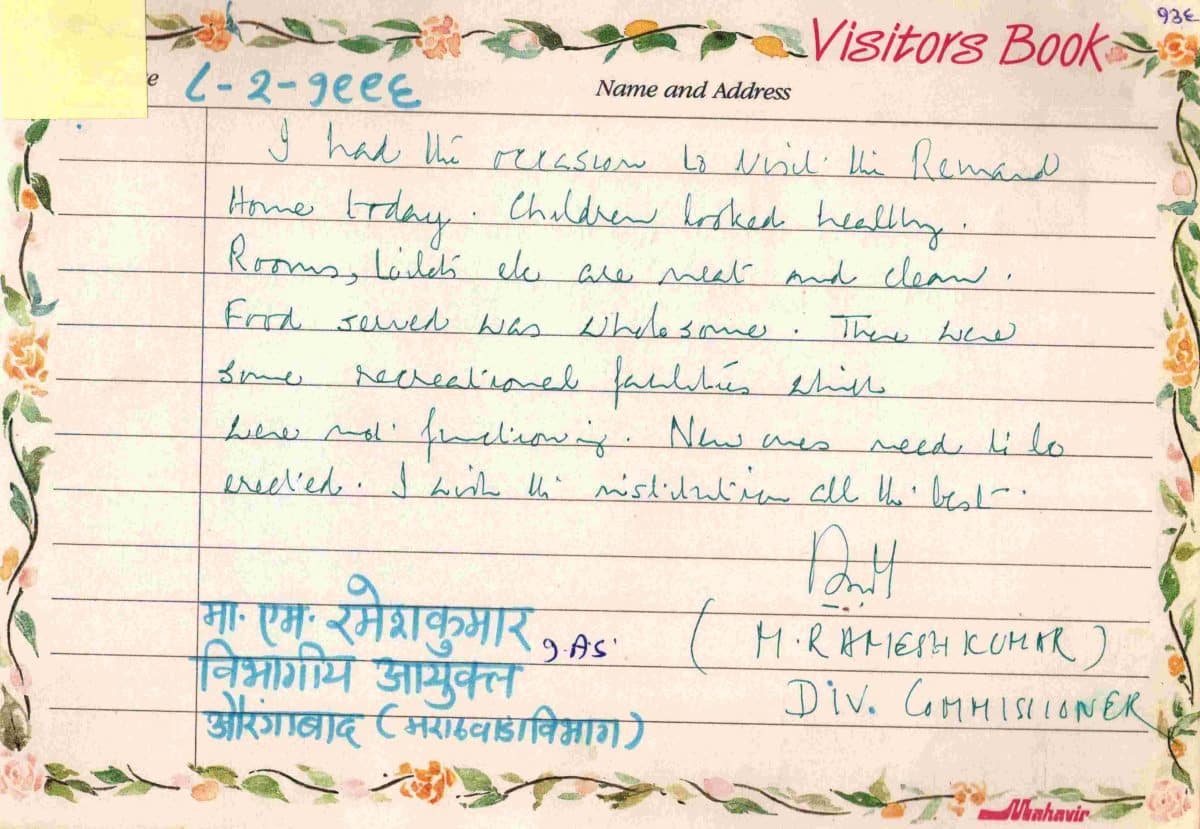 Visitors Book
१३६
e ८-२-१९९६ Name and Address
I had the occasion to visit the Remand
Home today. Children looked healthy.
Rooms, toilets etc are neat and clean.
Food served was wholesome. There were
some recreational facilities which
were not functioning. New ones need to be
erected. I wish the institution all the best.
मा. एम. रमेशकुमार I.A.S.
( M. RAMESH KUMAR )
विभागीय आयुक्त
DIV. COMMISIIONER
औरंगाबाद (मराठवाडा विभाग)
Mahavir